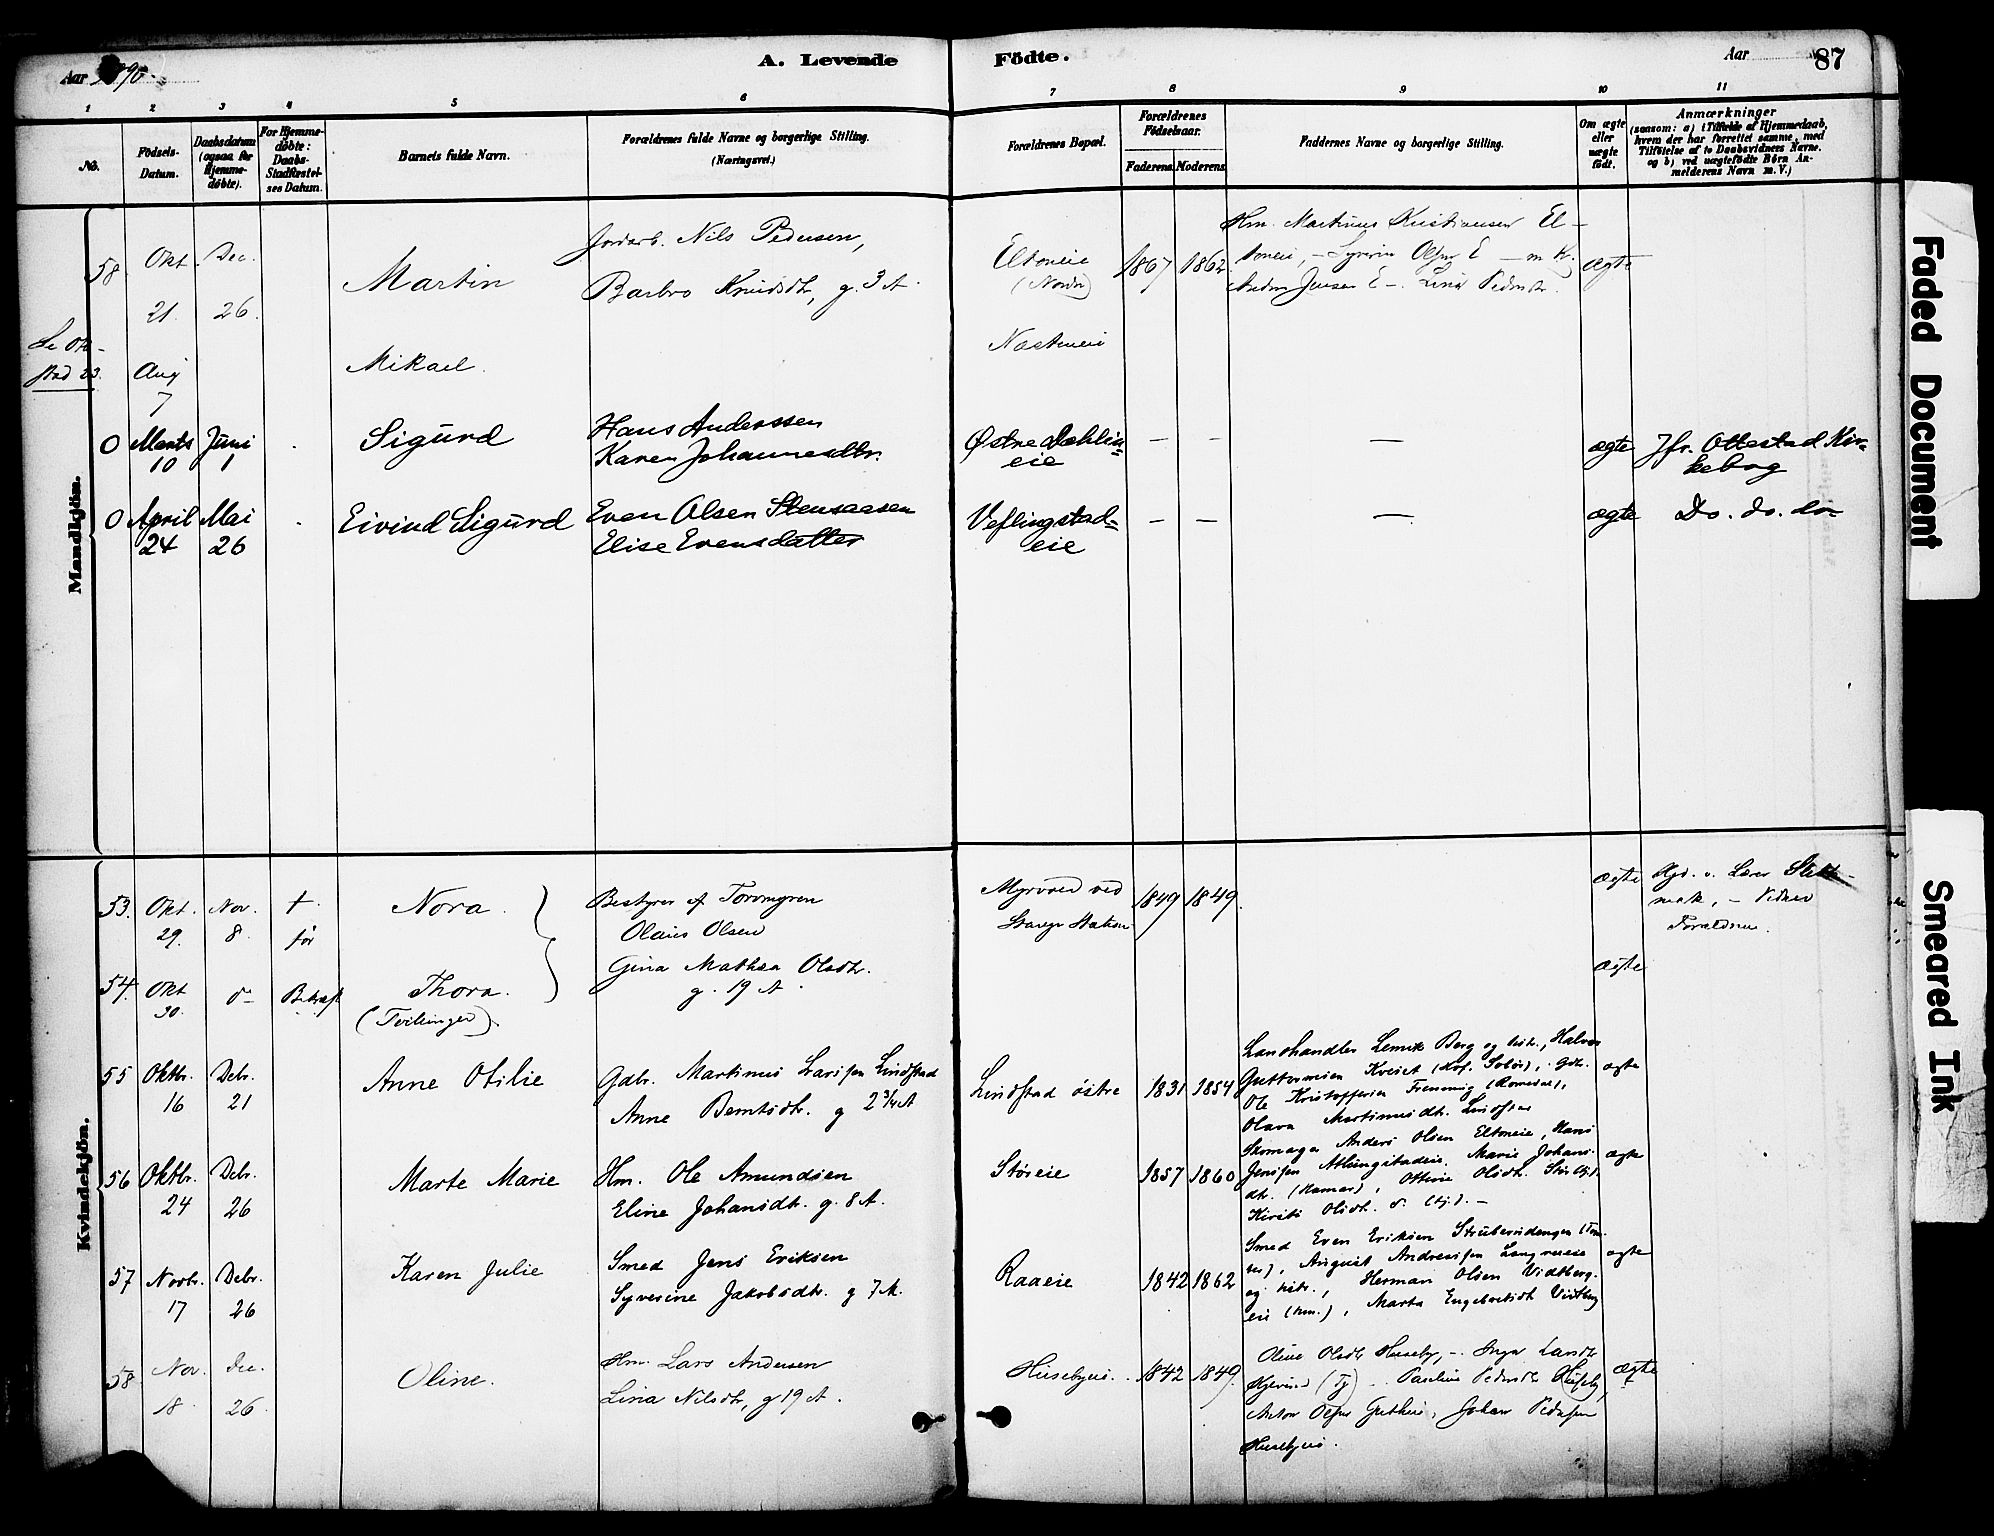 Aar 1890.
A. Levende
Födte.
Aar
87
1 2 3 4 5 6 7 8 9 10 11
No.
Födsels-Datum.
Daabsdatum (ogsaa for Hjemme-döbte).
For Hjemme-döbte: Daabs-Stadfæstel-ses Datum.
Barnets fulde Navn.
Forældrenes fulde Navne og borgerlige Stilling.
(Næringsvei.)
Forældrenes Bopæl.
Forældrenes Födselsaar.
Faderens. Moderens.
Faddernes Navne og borgerlige Stilling.
Om ægte eller uægte født.
Anmærkninger
(saasom: a) i Tilfælde af Hjemmedaab,
hvem der har forrettet samme, med
Tilföielse af to Daabsvidners Navne.
og b) ved uægtefödte Börn An-
melderens Navn m. V.)
Mandkjön.
58 Okt. 21. Dec. 26. Martin
Jordarb. Nils Pedersen,
Barbro Knudsdtr, g. 3 A.
Eltoneie (Nordr) 1867 1862
Hm. Martinus Kristiansen El-
toneie, - Syverin Olsen E - m K.
Anders Jensen E -. Lina Pedersdtr.
ægte
Se Ot-
stad 23.
Aug 7 Mikael. Næstneie
0 Marts 10 Juni 1 Sigurd
Hans Anderssen
Karen Johannesdtr.
Østre Dæhlin=
eie
— — — ægte Jfr. Ottestad Kir-
kebog
0 April 24 Mai 26 Eivind Sigurd
Even Olsen Stensaasen
Elise Evensdatter
Veflingstad=
eie
— — — ægte Do. do. do-
Kvindekjön.
53. Okt. 29. Nov. 8. † før Nora.
Bestyrer af Torvmyren
Olaus Olsen
Gina Mathea Olsdtr.
g. 19 A.
Myrvold ved
Stange Station
1849 1849.
ægte Hjd. v. Lærer
- Vidner
Forældrene.
54. Okt 30. d- Bekræft Thora.
(Tvillinger).
ægte
55 Oktbr. 16 Debr. 21 Anne Otilie
Gdbr. Martinus Larssen Lindstad
Anne Berntsdtr. g 2 3/4 A
Lindstad östre 1831 1854
Landhandler Lemik Berg og hstr., Halvor
Guttormsen Kveset (Hof. Solør), Gdbr.
Ole Kristoffersen Frenning (Romedal),
Olava Martinusdtr. Lindstad
ægte
56 Oktbr. 24 Debr. 26 Marte Marie
Hm. Ole Amundsen
Eline Johansdtr. g. 8 A.
Störeie 1857 1860
Skomager Anders Olsen Eltoneie, Hans
Jenssen Atlungstadeie. Marie Johans-
dtr. (Hamar), Ottine Olsdtr. Stör (tj).
Kirsti Olsdtr. d. (tj.). -
ægte
57 Novbr. 17 Debr. 26 Karen Julie
Smed Jens Eriksen
Syverine Jakobsdtr. g 7 A.
Raaeie 1842 1862
Smed Even Eriksen Strubersidengen (Rom.
), August Andreassen
og hstr., Herman Olsen Vidtberg-
eie (hm.), Marte Engebretsdtr Vidtberg
ægte
58 Nov. 18 Dec. 26. Oline.
Hm. Lars Andersen
Lina Nilsdtr, g 19 A.
Husebyei. 1842 1849.
Oline Olsdtr Huseby, -. Inga Larsdtr
(tj) -. Pauline Pedersdtr Huseby,
Anton Olsen Gutheie, Johan Pedersen
Husebyei.
ægte
Faded Document
Smeared Ink